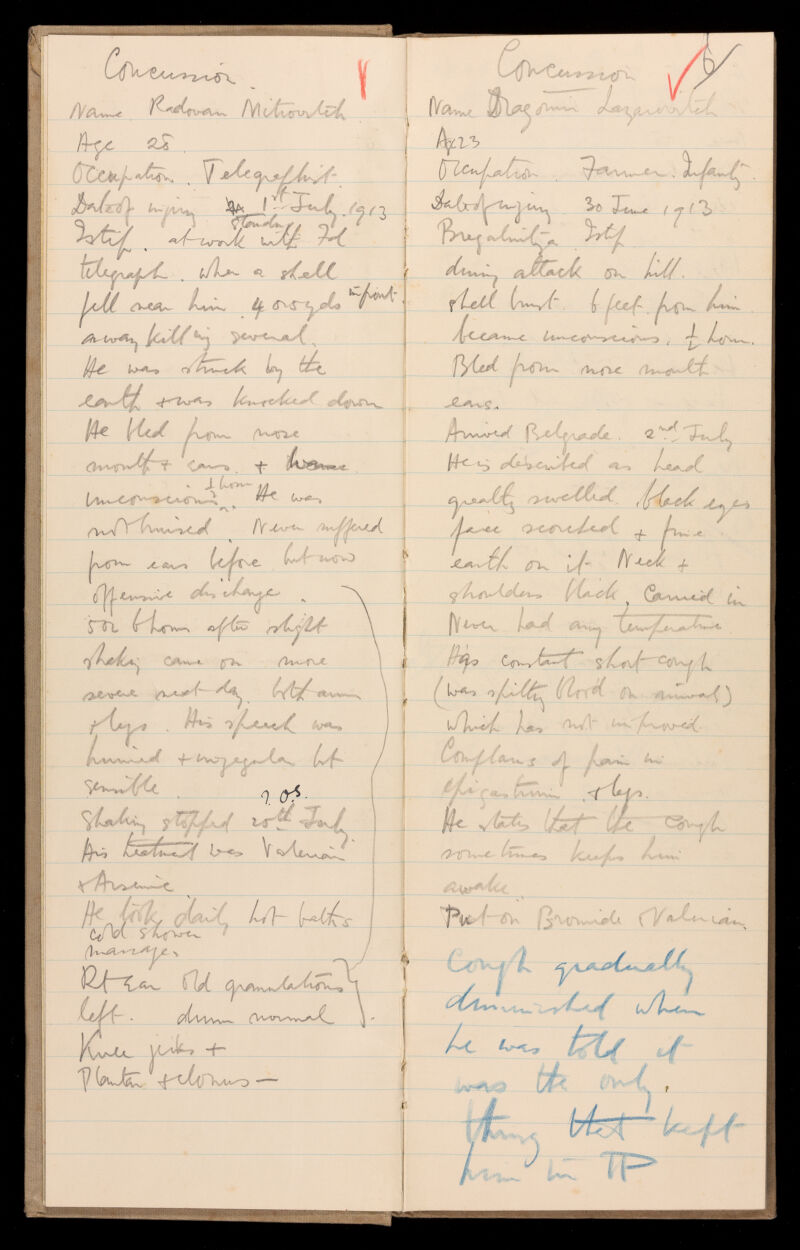 Concussion.
Name Radovan Mitrovitch
Age 28.
Occupation. Telegraphist.
Date of injury 1st July. 1913
Istip. standing at work with Fd
telegraph. when a shell
fell near him 4 or 5 yds in front.
away killing several.
He was struck by the
earth + was knocked down
He bled from nose
mouth + ears. +
unconscious ½ hour. He was
not bruised. Never suffered
from ears before but now
offensive discharge.
5 or 6 hours after slight
shaking came on more
severe next day. both arms
+ legs. His speech was
hurried + irregular but
sensible.
? O.S.
Shaking stopped 20th July.
His treatment was Valerian
+ Arsenic.
He took daily hot baths
cold shower
massage.
Rt Ear old granulations
left. drum normal.
Knee jerks +
Plantar + clonus —
Concussion 6
Name Dragomir Lazarovitch
Age 23
Occupation. Farmer. Infantry.
Date of injury 30 June 1913
Bregalnitza Istip
during attack on hill.
shell burst. 6 feet from him
became unconscious. ½ hour.
Bled from nose mouth
ears.
Arrived Belgrade. 2nd July
He is described as head
greatly swelled. black eyes
face scorched + fine
earth on it. Neck +
shoulders black. Carried in
Never had any temperature
Has constant short cough
(was spitting blood on arrival)
which has not improved
Complains of pain in
epigastrium. + legs.
He states that the cough
sometimes keeps him
awake.
Put on Bromide + Valerian.
Cough gradually
diminished when
he was told it
was the only.
thing that kept
him in